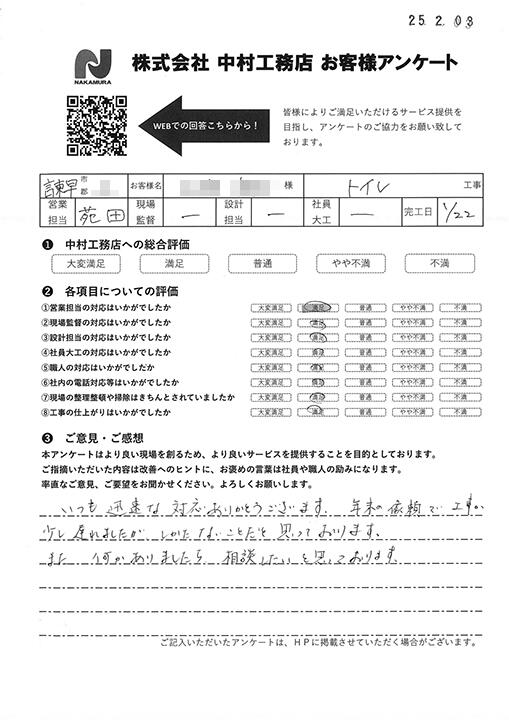 25.2.03
NAKAMURA
株式会社 中村工務店 お客様アンケート
WEBでの回答こちらから！
皆様によりご満足いただけるサービス提供を
目指し、アンケートのご協力をお願い致して
おります。
諫早 市 郡 お客様名 様 トイレ 工事
営業担当 苑田 現場監督 ー 設計担当 ー 社員大工 ー 完工日 1/22
❶ 中村工務店への総合評価
大変満足 満足 普通 やや不満 不満
❷ 各項目についての評価
①営業担当の対応はいかがでしたか 大変満足 満足 普通 やや不満 不満
②現場監督の対応はいかがでしたか 大変満足 満足 普通 やや不満 不満
③設計担当の対応はいかがでしたか 大変満足 満足 普通 やや不満 不満
④社員大工の対応はいかがでしたか 大変満足 満足 普通 やや不満 不満
⑤職人の対応はいかがでしたか 大変満足 満足 普通 やや不満 不満
⑥社内の電話対応等はいかがでしたか 大変満足 満足 普通 やや不満 不満
⑦現場の整理整頓や掃除はきちんとされていましたか 大変満足 満足 普通 やや不満 不満
⑧工事の仕上がりはいかがでしたか 大変満足 満足 普通 やや不満 不満
❸ ご意見・ご感想
本アンケートはより良い現場を創るため、より良いサービスを提供することを目的としております。
ご指摘いただいた内容は改善へのヒントに、お褒めの言葉は社員や職人の励みになります。
率直なご意見、ご要望をお聞かせください。よろしくお願いします。
いつも迅速な対応ありがとうございます。年末の依頼で工事が
少し遅れましたが、しかたないことだと思っております。
また何かありましたら相談したいと思っております。
ご記入いただいたアンケートは、HPに掲載させていただく場合がございます。